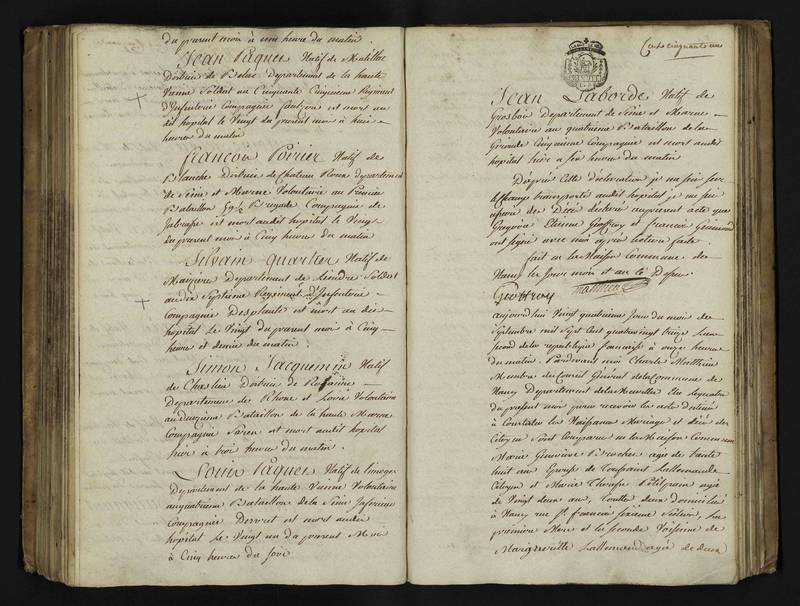 du present mois à une heure du matin
Jean Paquet Natif de Matillac
District de Belac Departement de la haute
Vienne Soldat au Cinquante Cinquieme Regiment
d'Infanterie Compagnie est mort au
dit hopital le Vingt du present mois à huit
heures du matin
francois Poirier Natif de
Blanche District de Chateau departement
de Seine et Marne Volontaire au Premier
Bataillon 59e 1/2 Brigade Compagnie de
est mort audit hopital le Vingt
du present mois à Cinq heures du matin
Silvain quartier Natif de
Maiziere Departement de Lindre Soldat
au dix Septieme Regiment d'Infanterie
Compagnie Desplante est mort au dit
hopital le Vingt du present mois à Cinq
heures et demie du matin
Simon Jacquemin Natif
de District de Roanne
Departement de Rhone et Loire Volontaire
au Deuxieme Bataillon de la haute Marne
Compagnie est mort audit hopital
hier à trois heures du matin
Louis Paquet Natif de limoge
Departement de la haute Vienne Volontaire
au quatrieme Bataillon de la Seine Inferieure
Compagnie est mort audit
hopital le Vingt un du present Mois
à Cinq heures du Soir
Cent cinquante un
Jean Laborde Natif de
Grosbois Departement de Seine et Marne
Volontaire au quatrieme Bataillon de la
Gironde Cinquieme Compagnie est mort audit
hopital hier à six heures du matin
D'après Cette declaration je me suis sur
le champ transporté audit hopital je me suis
assuré des Décès declarés au present acte que
Etienne Geoffroy et francois
ont signé avec moi après lecture faite
fait en la Maison Commune de
Nancy les jour mois et an Dessus
Geoffroy Matthieu
aujourdhui Vingt quatrieme Jour du mois de
Septembre mil Sept Cent quatre vingt treize Lan
Second de la republique francaise à onze heures
du matin Pardevant moi Charle Matthieu
Membre du Conseil General de la Commune de
Nancy Departement de la Meurthe Elu
du present mois pour recevoir les actes destinés
à Constater les Naissances Mariages et décès des
Citoyens Sont Comparus en la Maison Commune
Marie Geneviève agée de trente
huit ans Epouse de Toussaint Lallemand
Citoyen et Marie Therese agée
de Vingt deux ans, toutte deux domiciliées
à Nancy rue St francois sixieme Section, la
premiere Mere et la seconde Voisine de
Marguerite Lallemand agée de deux